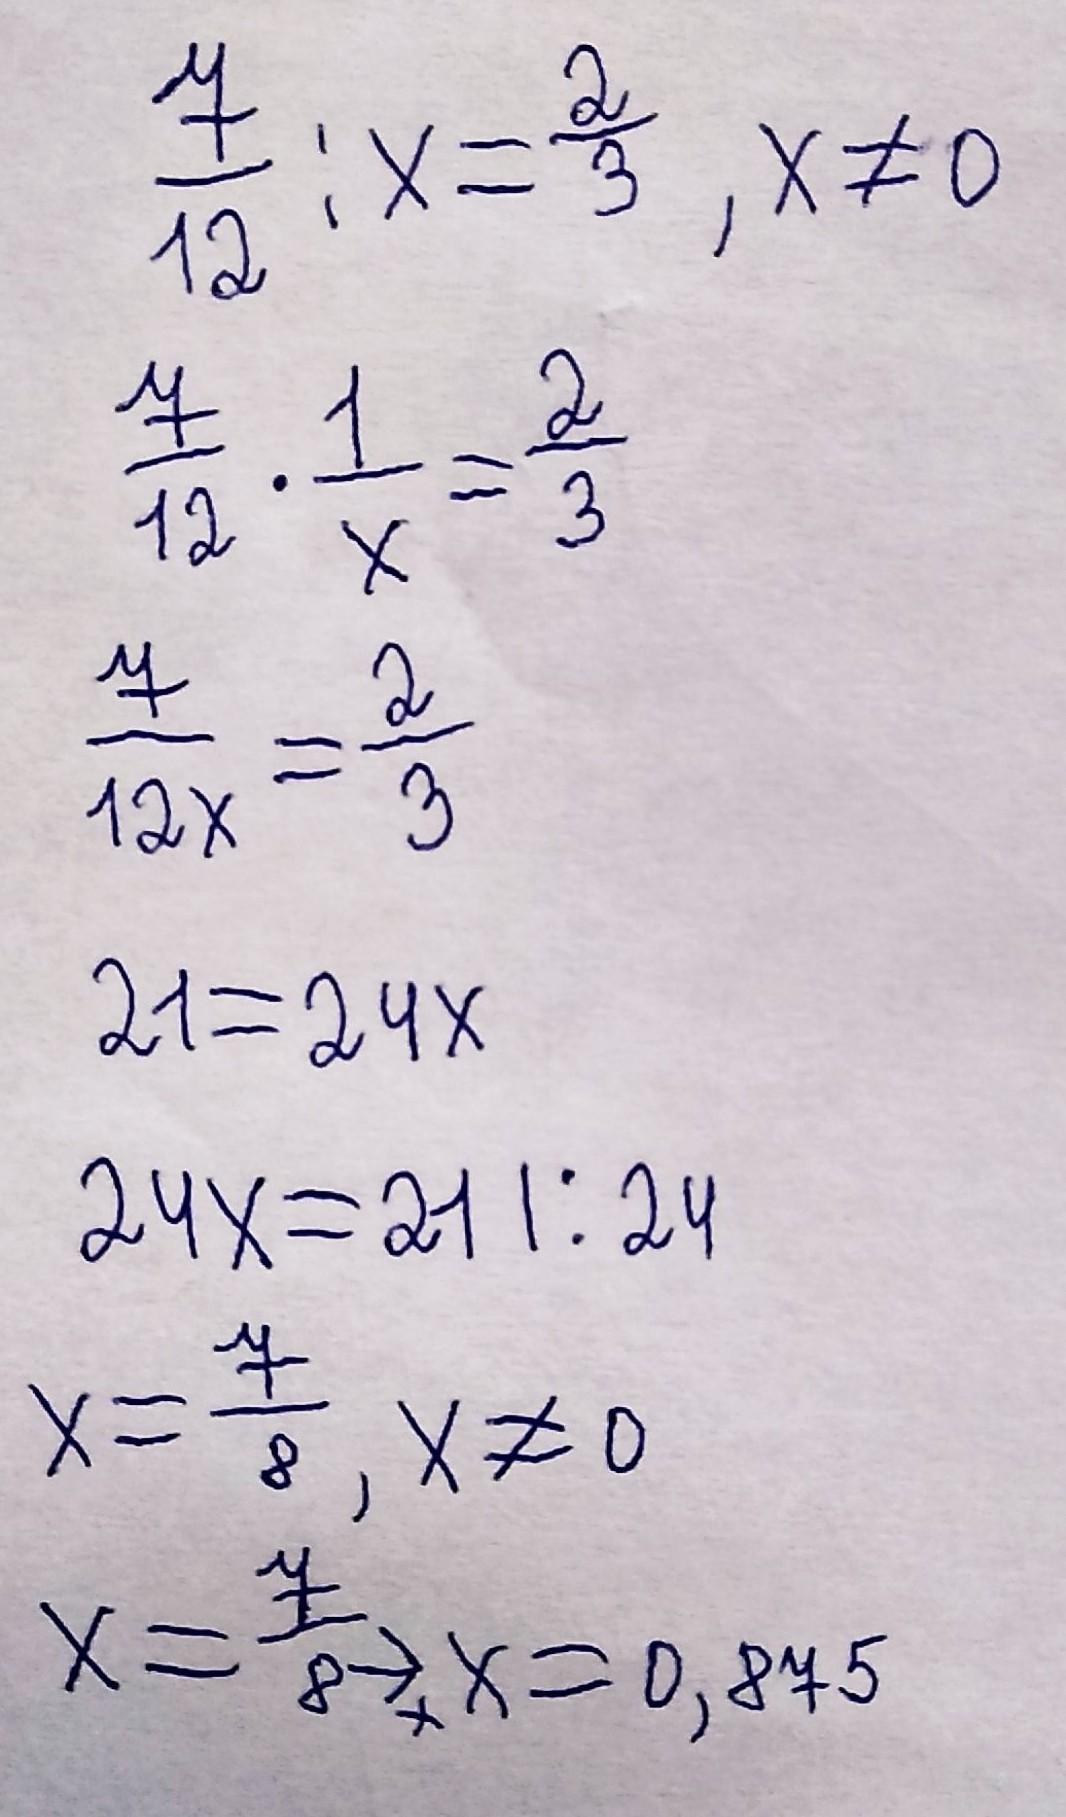 7/12 : x = 2/3 , x ≠ 0
7/12 · 1/x = 2/3
7/12x = 2/3
21 = 24x
24x = 21 | : 24
x = 7/8 , x ≠ 0
x = 7/8 → x = 0,875